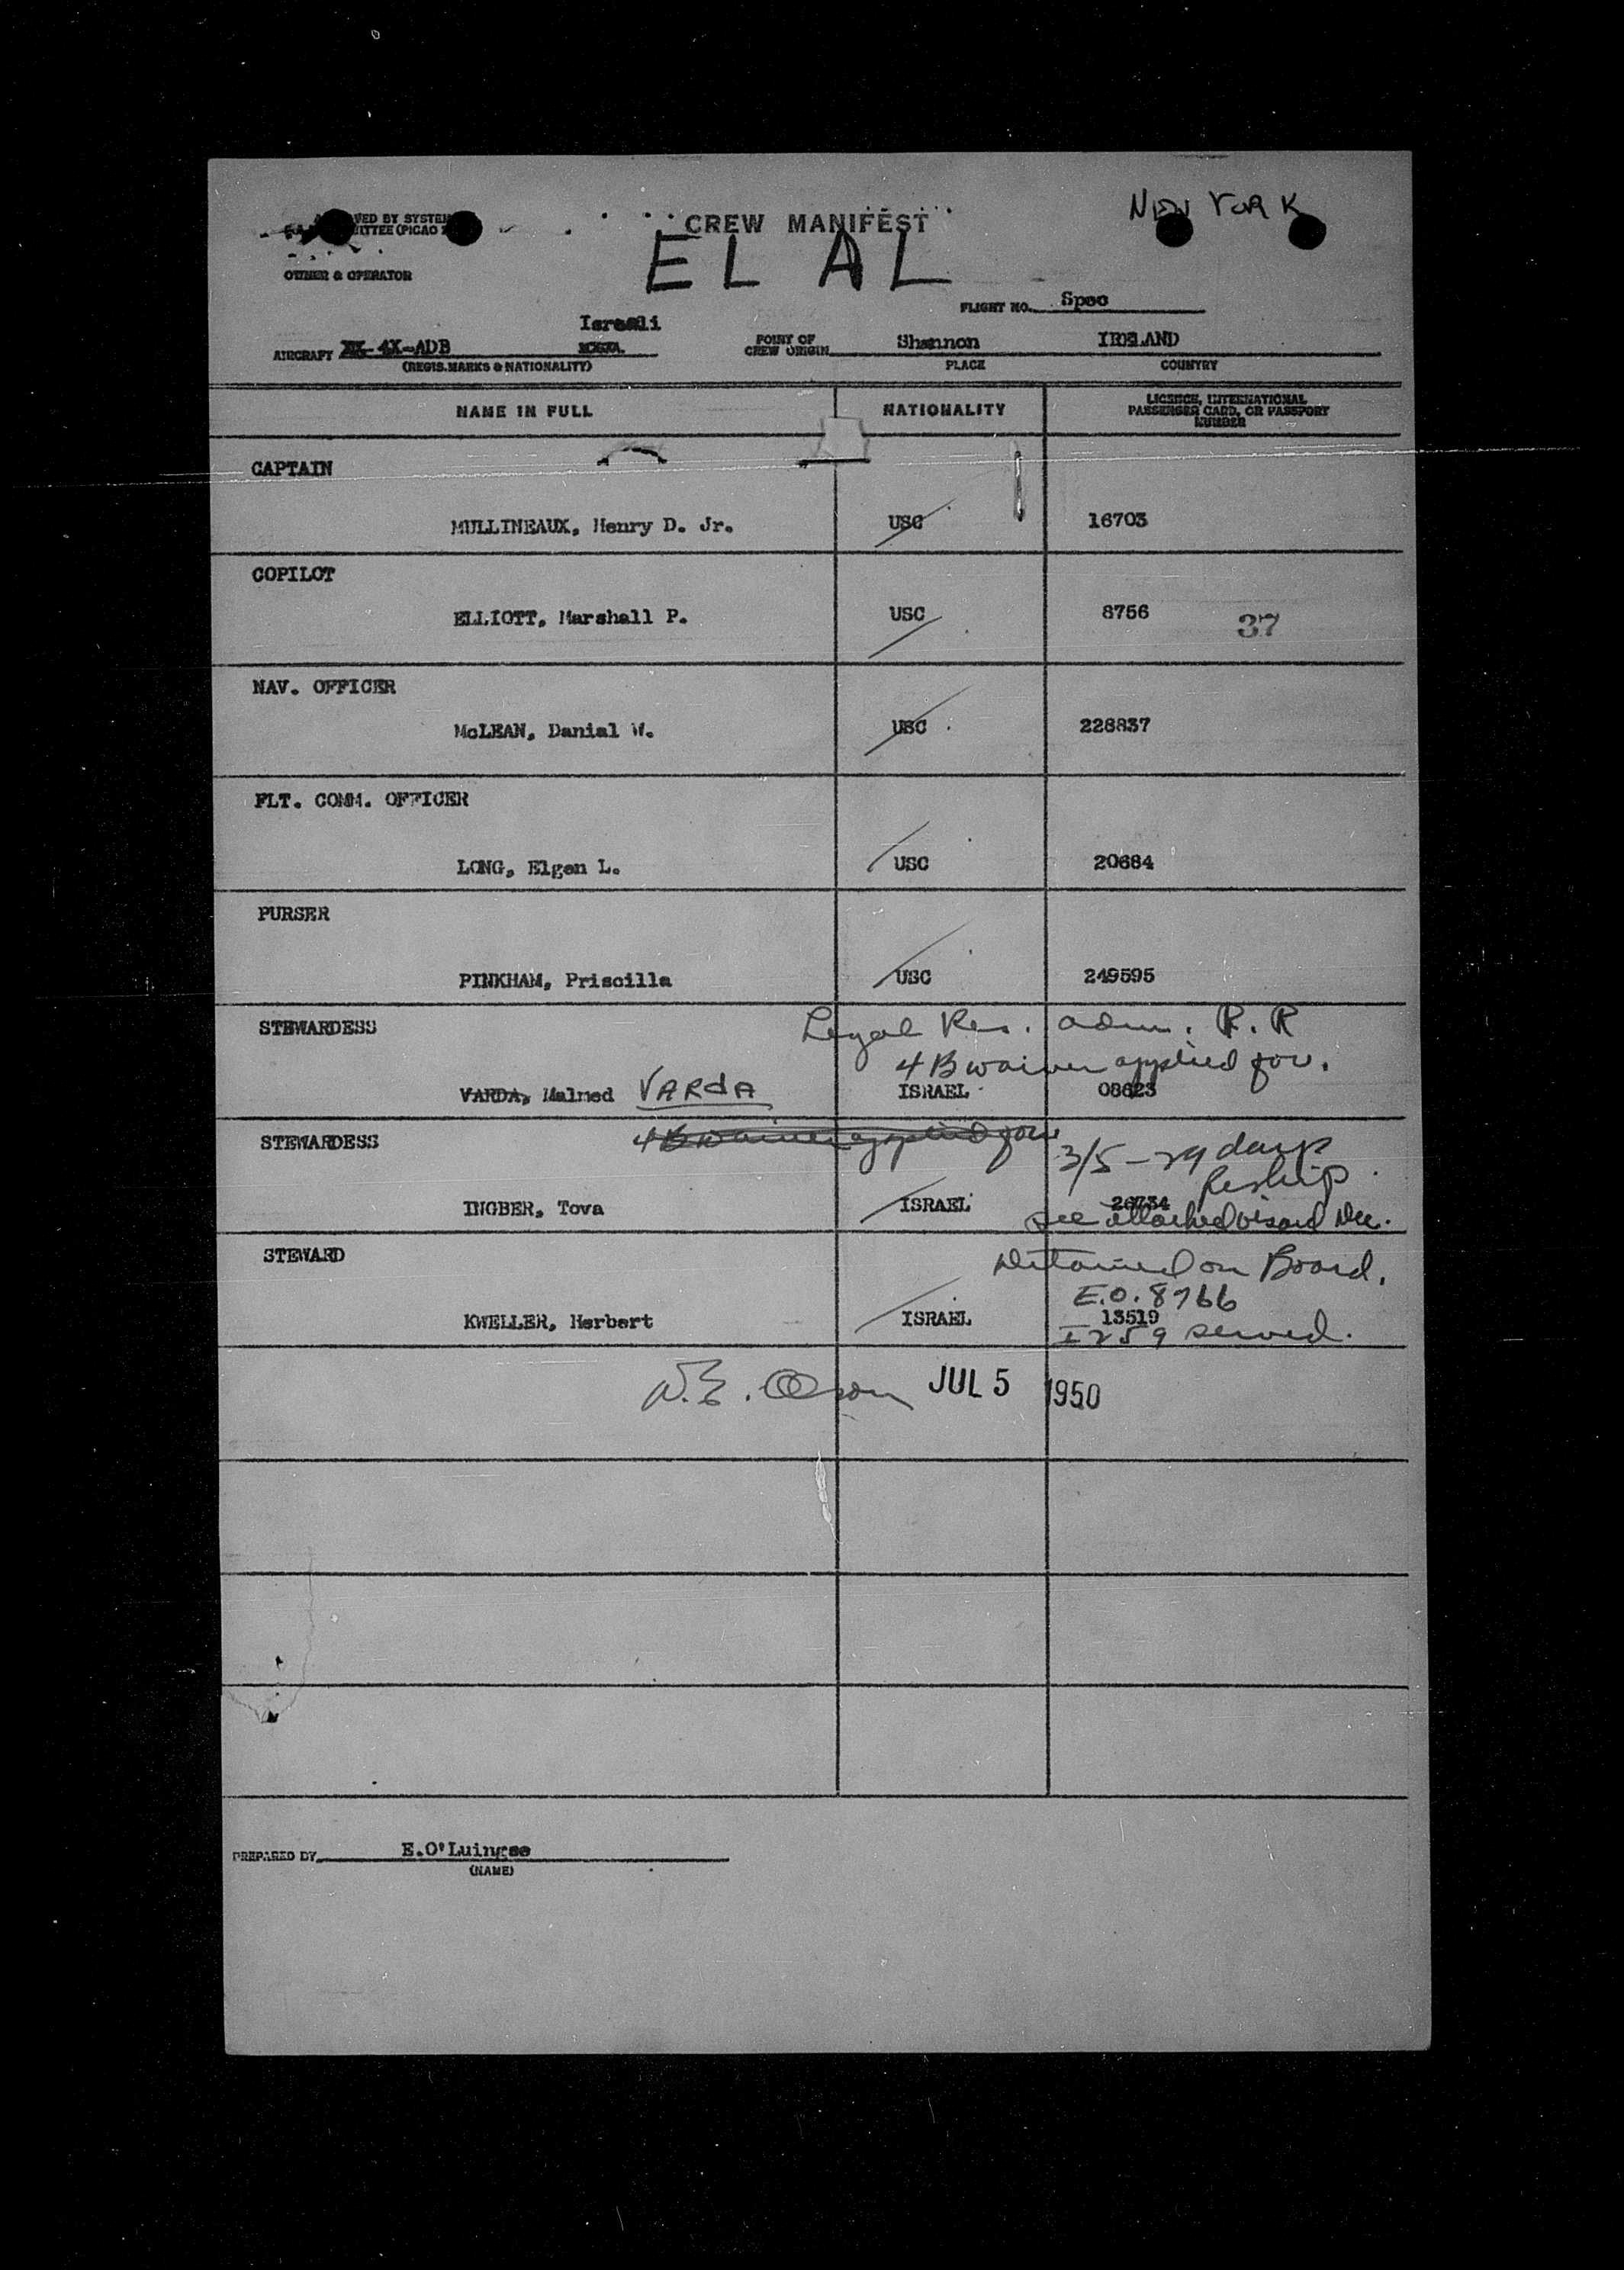 NEW YORK
VED BY SYSTEM
ITTEE (PICAO
CREW MANIFEST
EL AL
OWNER & OPERATOR
FLIGHT NO. Spec
Israeli
AIRCRAFT 4X-ADB
POINT OF CREW ORIGIN Shannon IRELAND
(REGIS. MARKS & NATIONALITY) PLACE COUNTRY
NAME IN FULL NATIONALITY LICENCE, INTERNATIONAL
PASSENGER CARD, OR PASSPORT
NUMBER
CAPTAIN
MULLINEAUX, Henry D. Jr. USC 16703
COPILOT
ELLIOTT, Marshall P. USC 8756 37
NAV. OFFICER
McLEAN, Danial W. USC 228837
FLT. COMM. OFFICER
LONG, Elgen L. USC 20684
PURSER
PINKHAM, Priscilla USC 249595
STEWARDESS Legal Res. adm. R.R
4 B waiver applied for.
VARDA, Malned VARdA ISRAEL 08623
STEWARDESS 4 B waiver applied for 3/5 - 29 days
Reship.
INGBER, Tova ISRAEL 26734
see attached visaed Dec.
STEWARD Detained on Board.
E.O. 8766
KWELLER, Herbert ISRAEL 13519
I 259 served.
JUL 5 1950
PREPARED BY E.O'Luingse
(NAME)